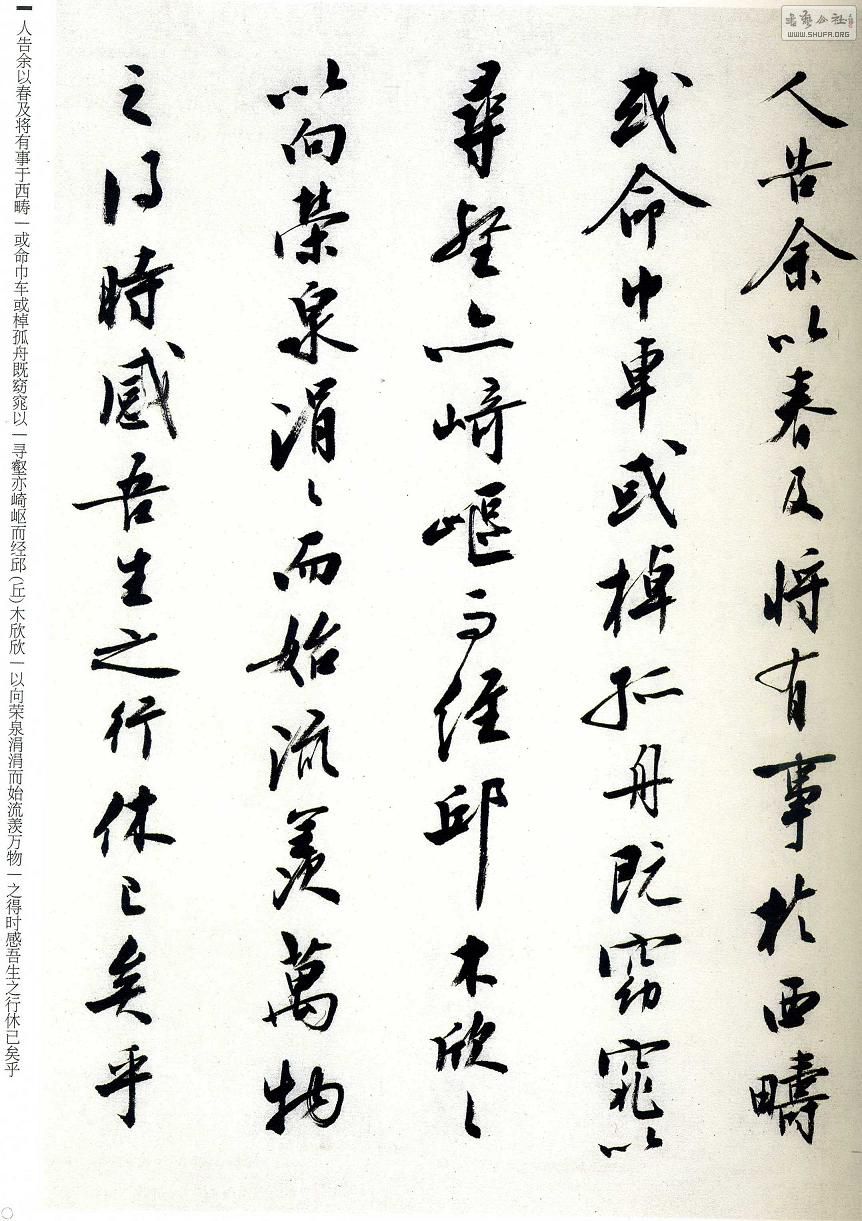 人告余以春及將有事於西疇
或命巾車或棹孤舟既窈窕以
尋壑亦崎嶇而經邱木欣〻
以向榮泉涓〻而始流羨萬物
之得時感吾生之行休已矣乎
人告余以春及将有事于西畴一或命巾车或棹孤舟既窈窕以一寻壑亦崎岖而经邱(丘)木欣欣一以向荣泉涓涓而始流羡万物一之得时感吾生之行休已矣乎
WWW.SHUFA.ORG